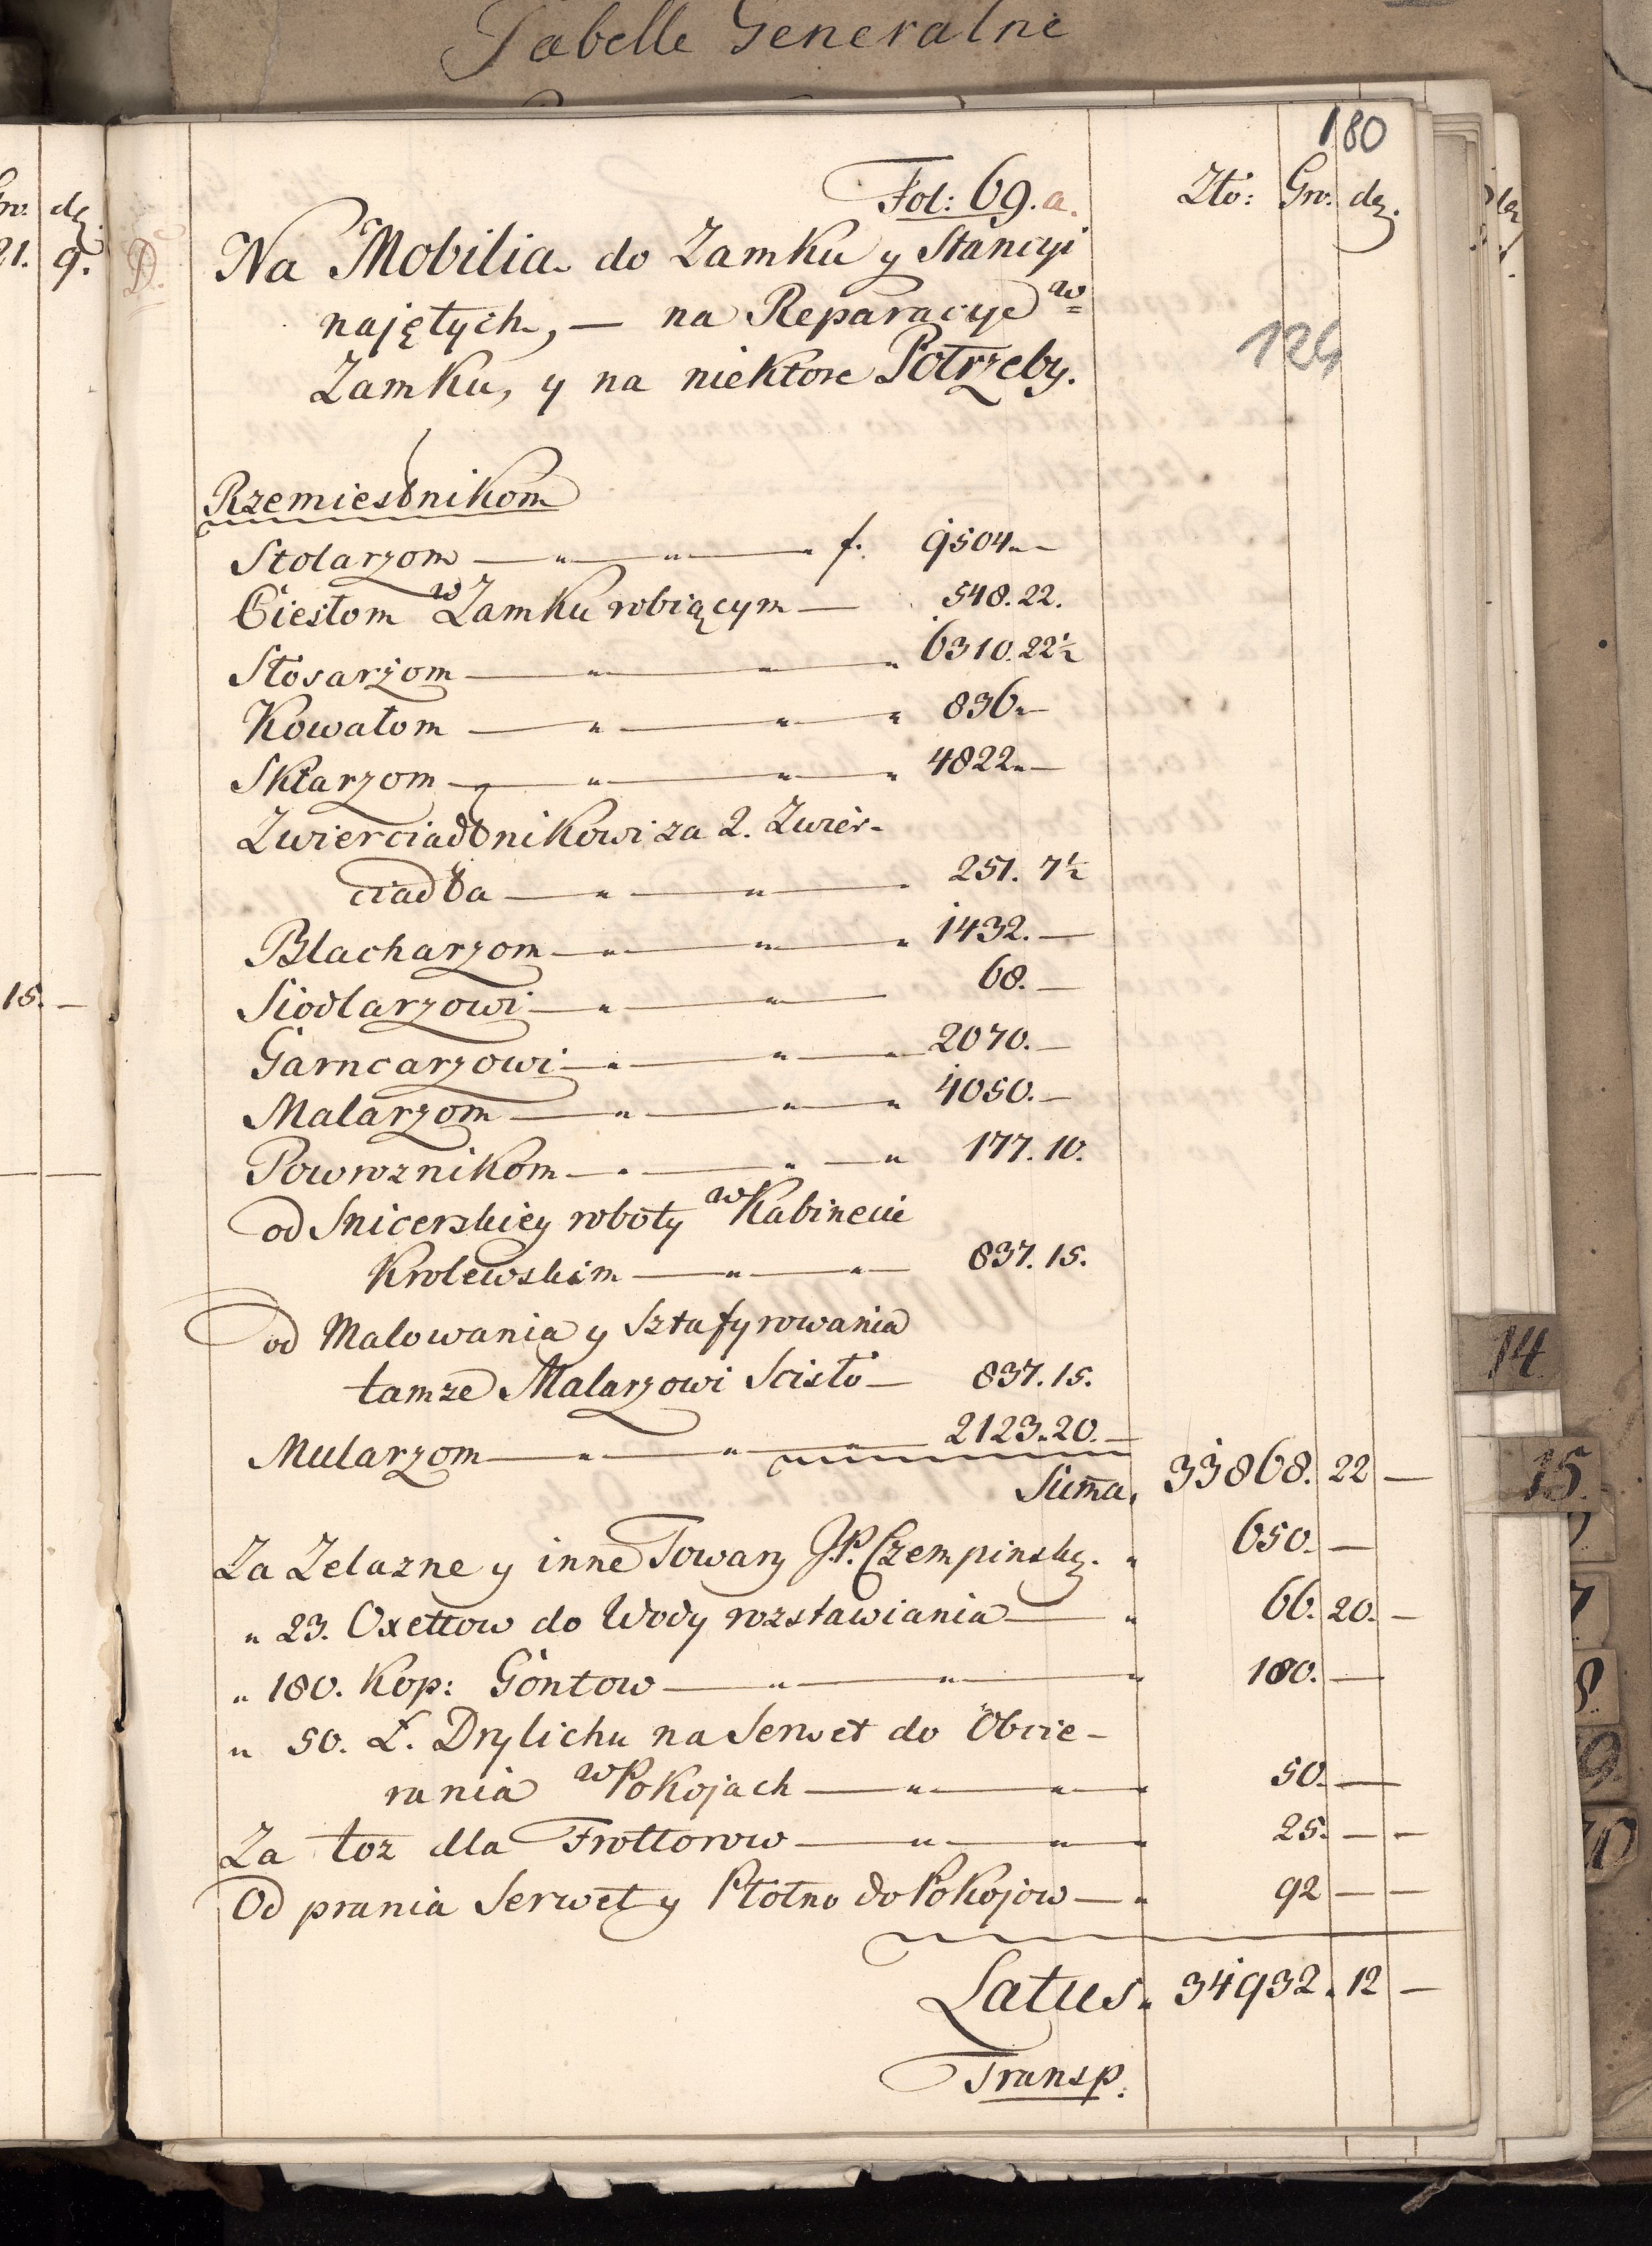 Tabelle Generalne
180
Fol: 69. a. Zło: Gr. dz.
Na Mobilia do Zamku y Stancyi
najętych, — na Reparacye w=
Zamku, y na niektore Potrzeby.
124
Rzemieslnikom
Stolarzom — „ — „ — f. 9504 „ —
Cieslom w Zamku robiącym — 548. 22.
Słosarzom — „ — „ — „ 6310. 22½
Kowalom — „ — „ — „ 836 „ —
Sklarzom — „ — „ — „ 4822 „ —
Zwierciadlnikowi za 2. Zwier-
ciadła — „ — „ — 251. 7½
Blacharzom — „ — „ — „ 1432. —
Siodlarzowi — „ — „ — 68. —
Garncarzowi — „ — „ — „ 2070. —
Malarzom — „ — „ — „ 4050. —
Powroznikom — „ — „ — „ 177. 10.
od Snicerskiey roboty w Kabinecie
Krolewskim — „ — „ — 837. 15.
od Malowania y Sztafyrowania
tamze Malarzowi Scisło — 837. 15.
Mularzom — „ — „ — „ — 2123. 20. —
Suma. 33868. 22 —
Za Zelazne y inne Towary J.P. Czempinsky. „ 650. —
„ 23. Oxeftow do Wody rozstawiania — „ 66. 20. —
„ 180. Kop: Gontow — „ — „ — „ 180. —
„ 50. Ł. Drylichu na Serwet do Obcie-
rania w Pokojach — „ — „ — „ 50. —
Za toz dla Frotterow — „ — „ — „ 25. — —
Od prania Serwet y Płotno do Pokojow — „ 92 — —
Latus. 34932. 12 —
Transp.
21. 9.
15. —
D.
14
15.